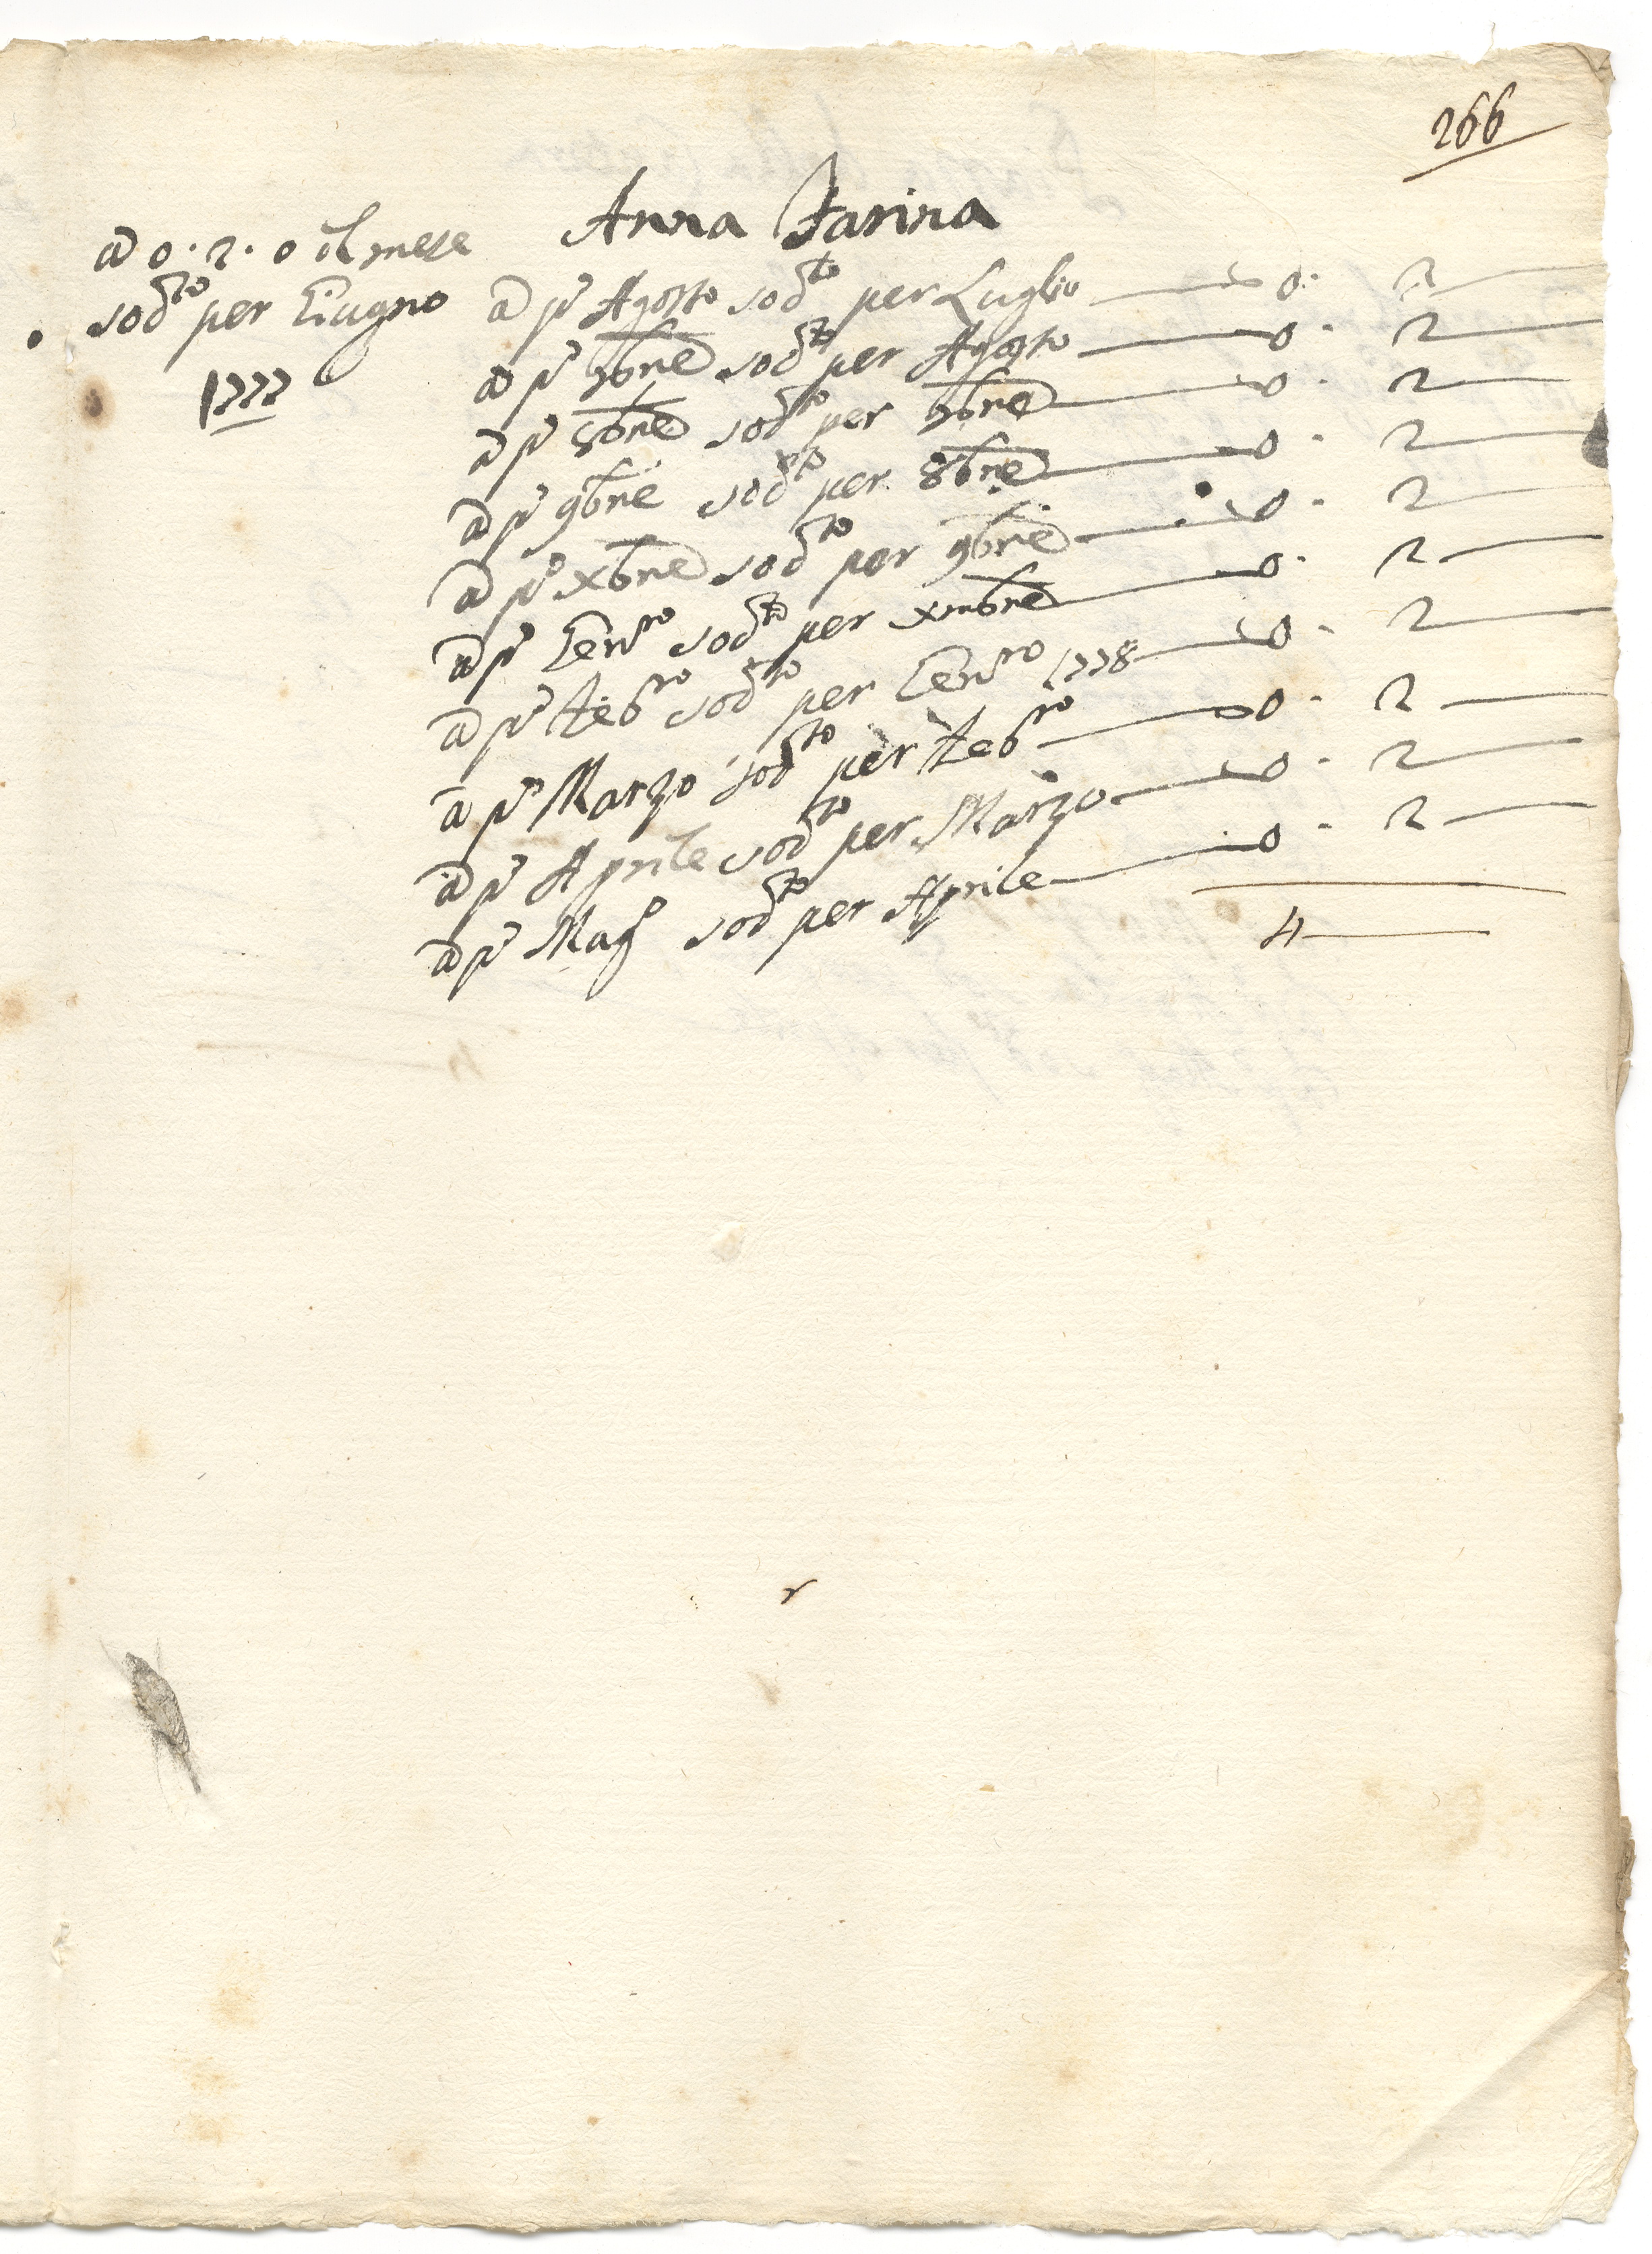 266
Anna Farina
a 0.2.0 il mese
sodto per Giugno
1777
a pº Agosto sodto per Luglio — 0. 2 —
a pº 7bre sodto per Agosto — 0. 2 —
a pº 8bre sodto per 7bre — 0. 2 —
a pº 9bre sodto per 8bre — 0. 2 —
a pº xbre sodto per 9bre — 0. 2 —
a pº Genro sodto per xmbre — 0. 2 —
a pº Febro sodto per Genro 1778 — 0. 2 —
a pº Marzo sodto per Febro — 0. 2 —
a pº Aprile sodto per Marzo — 0. 2 —
a pº Magº sodto per Aprile — 0. 2 —
4 —